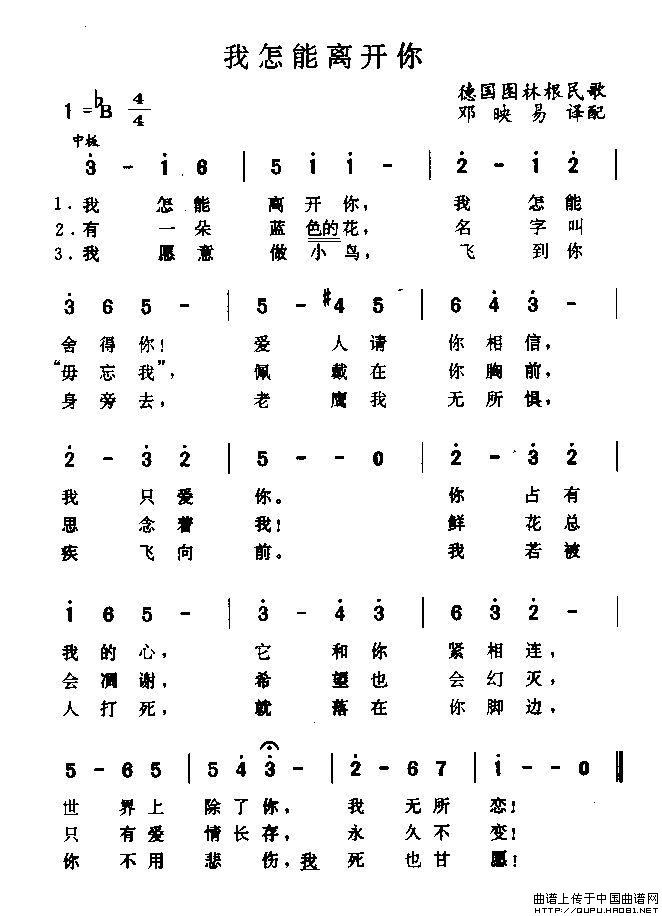 我怎能离开你
德国图林根民歌
1=♭B 4/4
邓映易 译配
中板
3 - 1 6 | 5 1 1 - | 2 - 1 2 |
1.我 怎能 离开你, 我 怎能
2.有 一朵 蓝色的花, 名 字叫
3.我 愿意 做小鸟, 飞 到你
3 6 5 - | 5 - #4 5 | 6 4 3 - |
舍得你! 爱 人请 你相信,
“毋忘我”, 佩 戴在 你胸前,
身旁去, 老 鹰我 无所惧,
2 - 3 2 | 5 - - 0 | 2 - 3 2 |
我 只爱 你。 你 占有
思 念着 我! 鲜 花总
疾 飞向 前。 我 若被
1 6 5 - | 3 - 4 3 | 6 3 2 - |
我的心, 它 和你 紧相连,
会凋谢, 希 望也 会幻灭,
人打死, 就 落在 你脚边,
5 - 6 5 | 5 4 3 - | 2 - 6 7 | 1 - - 0 ‖
世 界上 除了你, 我 无所 恋!
只 有爱 情长存, 永 久不 变!
你 不用 悲伤,我 死 也甘 愿!
曲谱上传于中国曲谱网
HTTP://QUPU.HAO81.NET